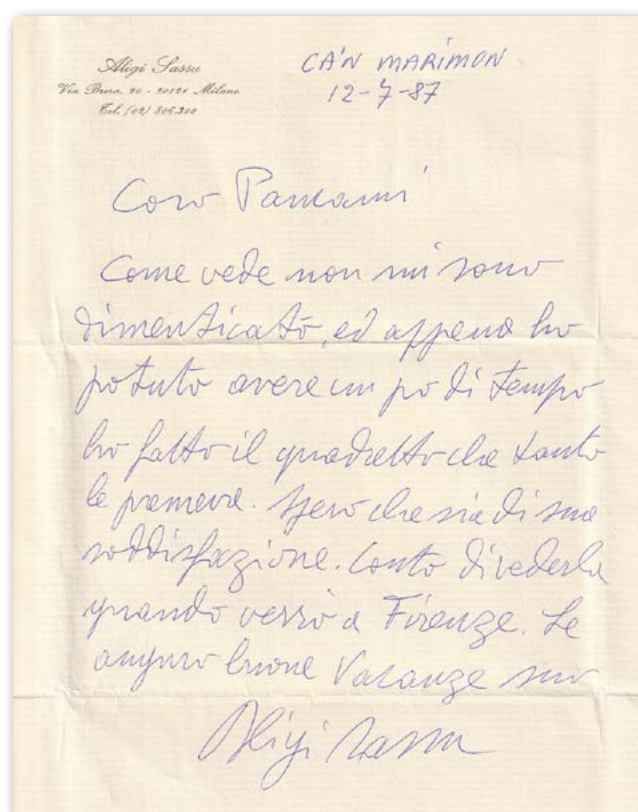 Aligi Sassu
Via Brera, 20 - 20121 Milano
Tel. (02) 806.300
CA'N MARIMON
12-7-87
Caro
Come vede non mi sono
dimenticato, ed appena ho
potuto avere un po di tempo
ho fatto il quadretto che tanto
le premeva. Spero che sia di sua
soddisfazione. Conto di vederla
quando verrò a Firenze. Le
auguro buone vacanze suo
Aligi Sassu